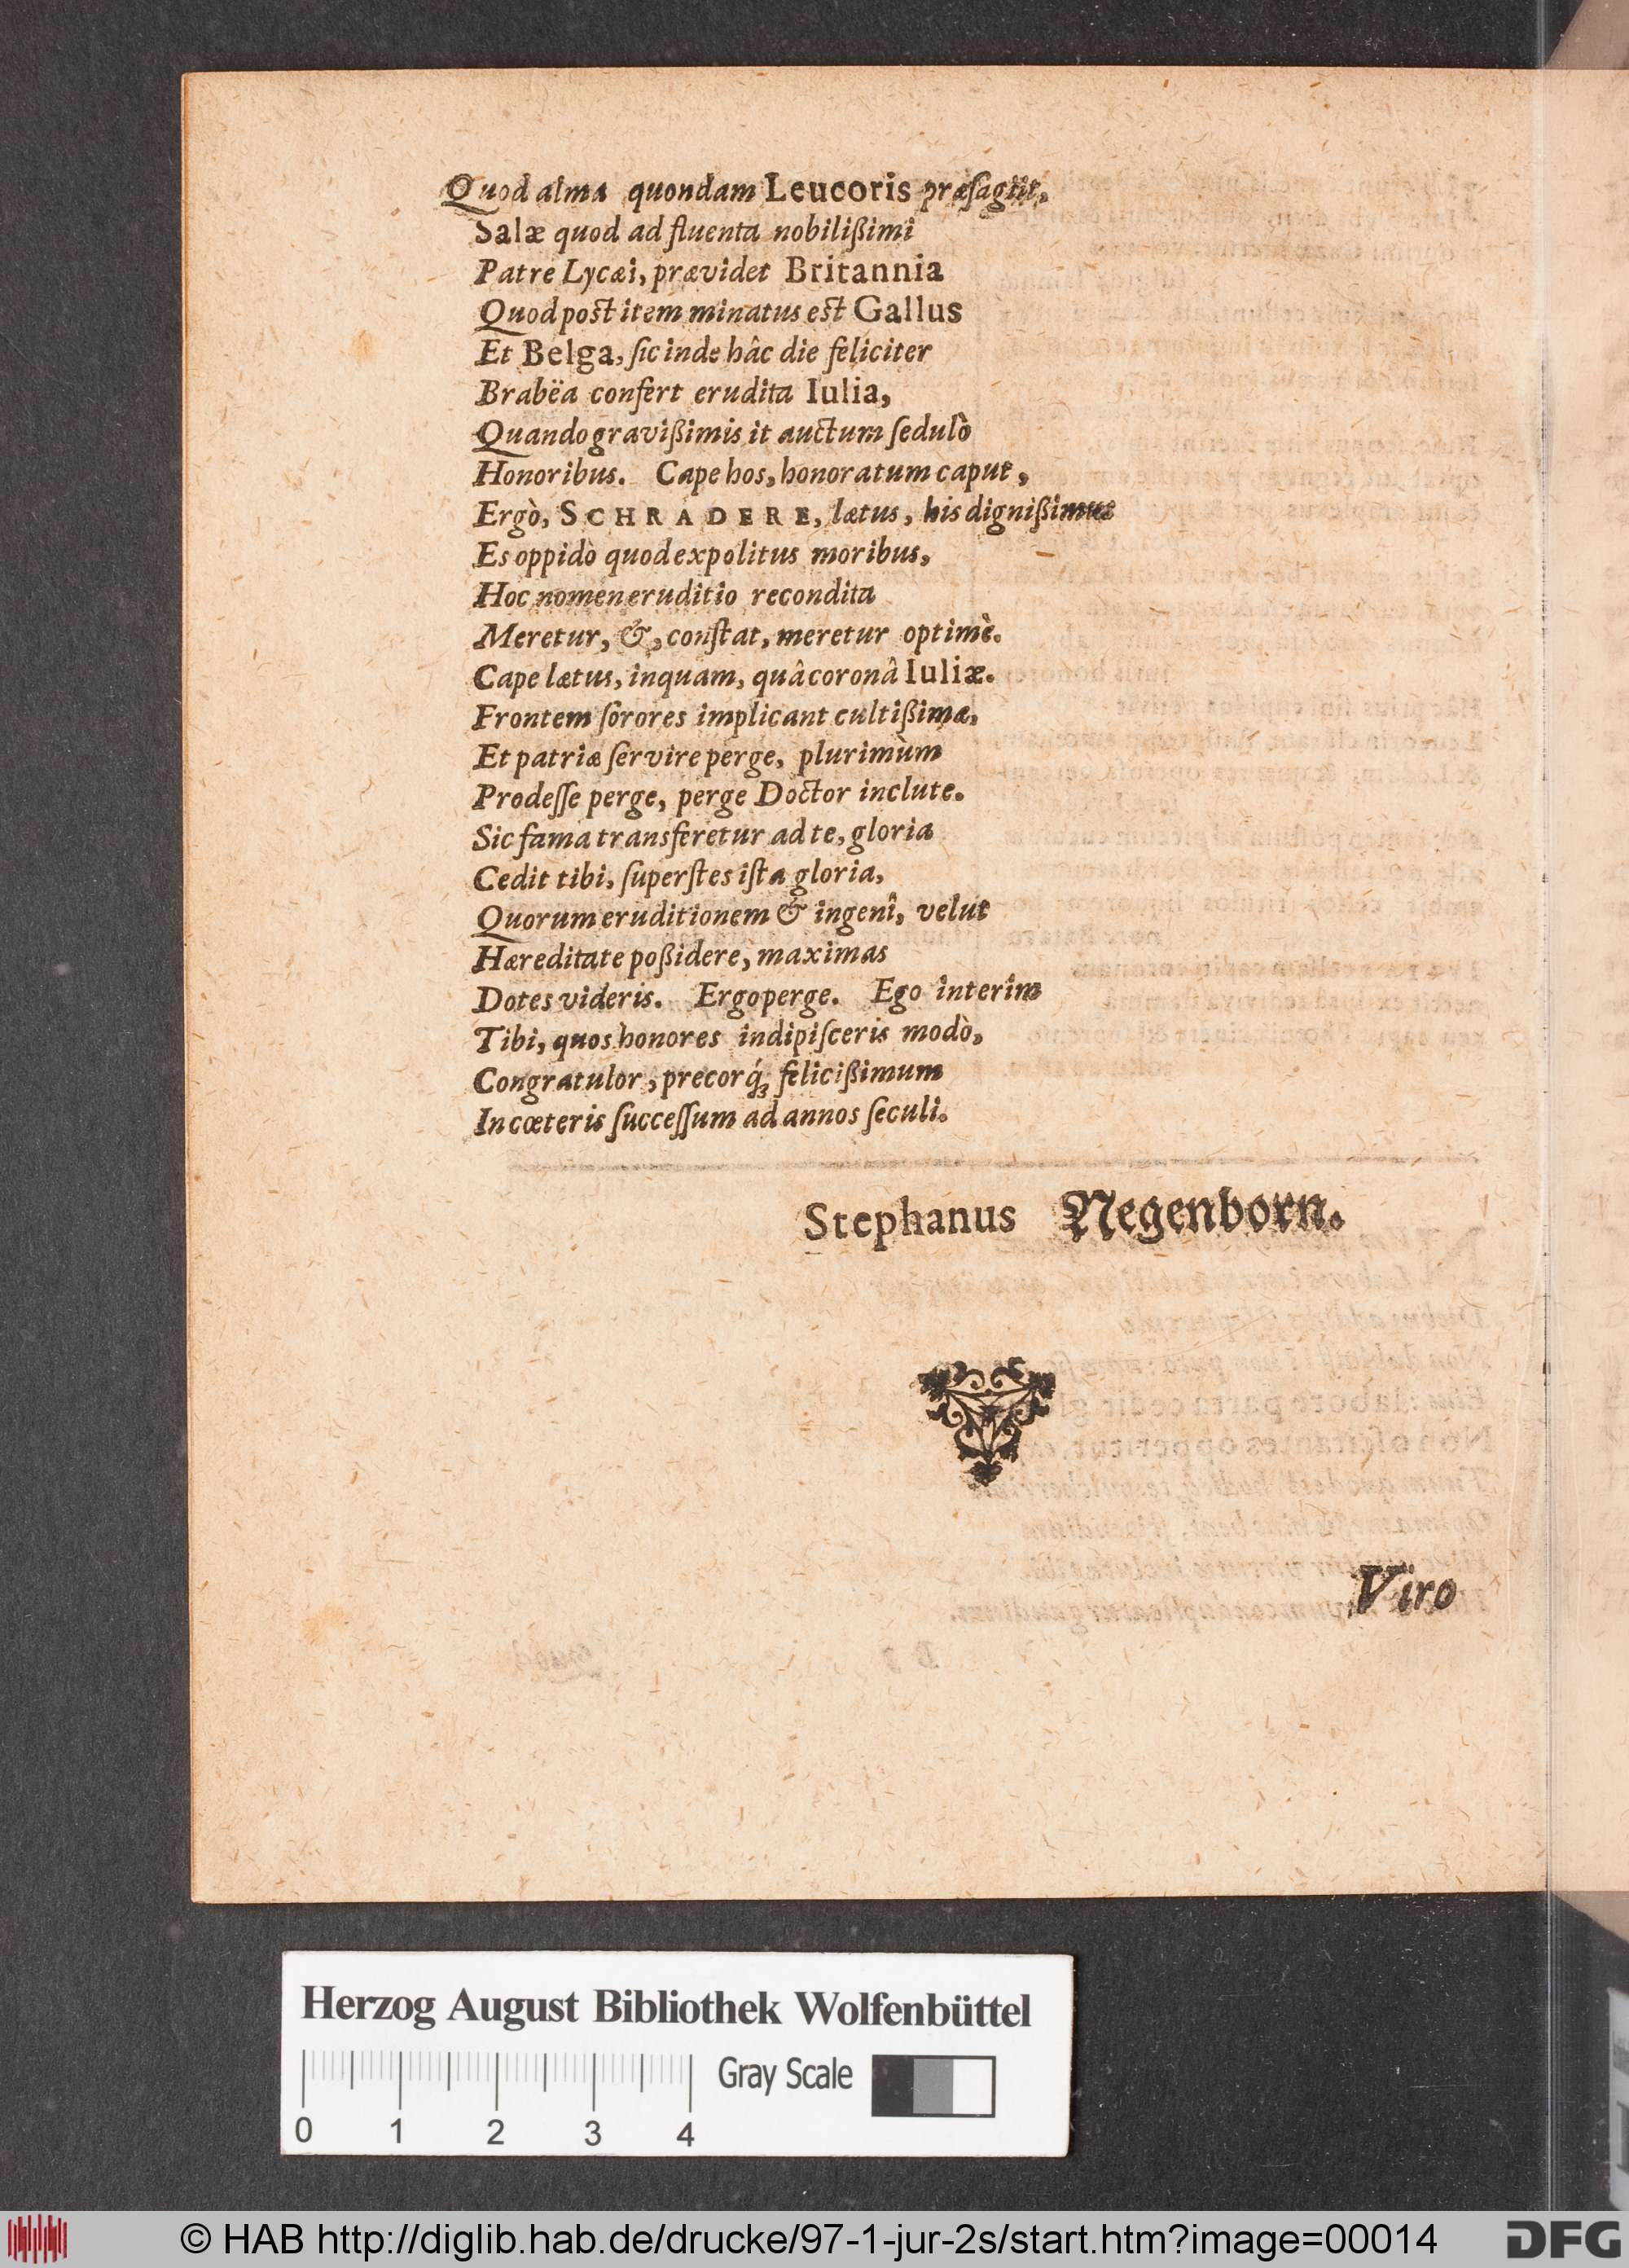 Quod alma quondam Leucoris præsagiit,
Salæ quod ad fluenta nobilißimi
Patre Lycæi, prævidet Britannia
Quod post item minatus est Gallus
Et Belga, ſic inde hâc die feliciter
Brabëa confert erudita Iulia,
Quando gravißimis it auctum ſedulò
Honoribus. Cape hos, honoratum caput,
Ergò, SCHRADERE, lætus, his dignißimus
Es oppidò quod expolitus moribus,
Hoc nomen eruditio recondita
Meretur, &, conſtat, meretur optimè.
Cape lætus, inquam, quâ coronâ Iuliæ.
Frontem ſorores implicant cultißimæ,
Et patriæ ſervire perge, plurimùm
Prodeſſe perge, perge Doctor inclute.
Sic fama transferetur ad te, gloria
Cedit tibi, ſuperſtes iſta gloria,
Quorum eruditionem & ingenî, velut
Hæreditate poßidere, maximas
Dotes videris. Ergo perge. Ego interim
Tibi, quos honores indipiſceris modò,
Congratulor, precorq́ꝫ felicißimum
In cœteris ſucceſſum ad annos ſeculi.
Stephanus Negenborn.
Viro
Herzog August Bibliothek Wolfenbüttel
Gray Scale
0 1 2 3 4
© HAB http://diglib.hab.de/drucke/97-1-jur-2s/start.htm?image=00014
DFG